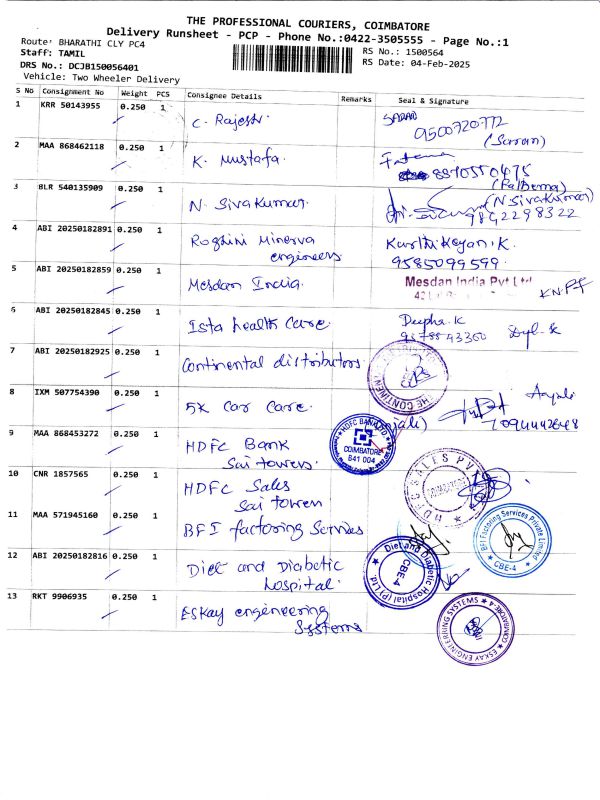 THE PROFESSIONAL COURIERS, COIMBATORE
Delivery Runsheet - PCP - Phone No.:0422-3505555 - Page No.:1
Route: BHARATHI CLY PC4
Staff: TAMIL
DRS No.: DCJB150056401
Vehicle: Two Wheeler Delivery
RS No.: 1500564
RS Date: 04-Feb-2025
S No Consignment No Weight PCS Consignee Details Remarks Seal & Signature
1 KRR 50143955 0.250 1 C. Rajesh.
9500720772
(Saran)
2 MAA 868462118 0.250 1 K. Mustafa. Fatema
(Fatema)
3 BLR 540135909 0.250 1 N. Sivakumar. (N Sivakumar)
9842298322
4 ABI 20250182891 0.250 1 Roghini Minerva
engineers
Karthikeyan.K.
9585099599.
5 ABI 20250182859 0.250 1 Mesdan India. Mesdan India Pvt Ltd
6 ABI 20250182845 0.250 1 Ista health care. Deepha.K
7 ABI 20250182925 0.250 1 Continental distributors
8 IXM 507754390 0.250 1 5K Car Care. Anjali
9 MAA 868453272 0.250 1 HDFC Bank
Sai towers.
HDFC BANK LTD.
COIMBATORE
641 004
10 CNR 1857565 0.250 1 HDFC Sales
Sai towers
HDFC SALES PVT
11 MAA 571945160 0.250 1 BFI factoring Services
BFI Factoring Services Private Limited
CBE-4
12 ABI 20250182816 0.250 1 Diet and Diabetic
hospital.
Diet and Diabetic Hospital (P) Ltd.
CBE-4
13 RKT 9906935 0.250 1 ESKay engineering
Systems
ESKAY ENGINEERING SYSTEMS
COIMBATORE-4